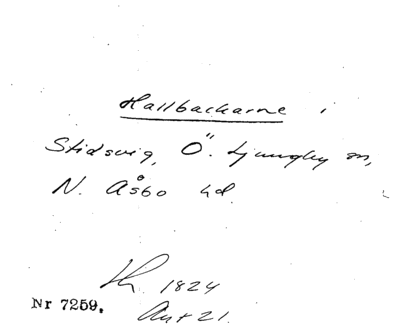 Hallbackarne i
Stidsvig, Ö. Ljungby sn,
N. Åsbo hd.
1824
Nr 7259.
21.